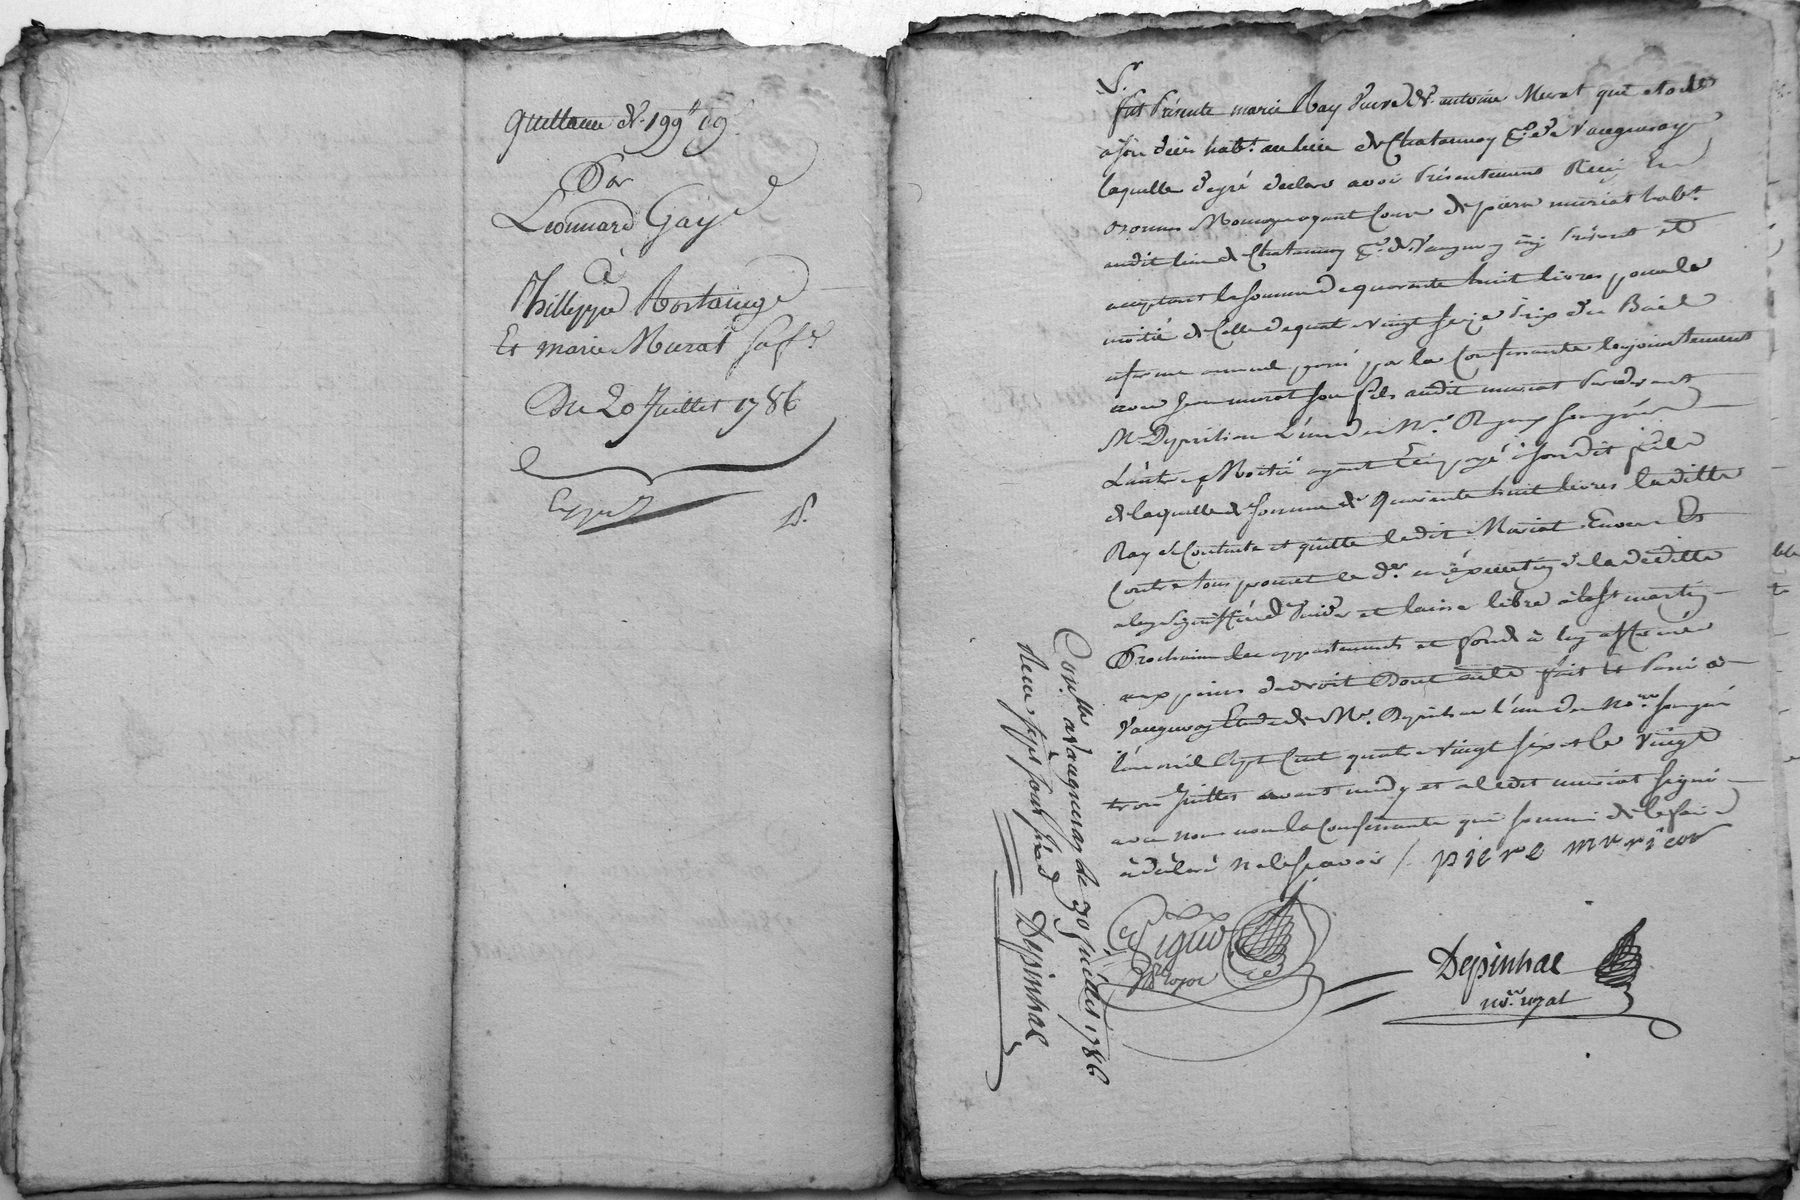 quittance de 199ᵗᵗ 19ˢ
Par
Leonnard Gay
à
Philleppe Rostaing
Et marie Murat sa fᵉ
Du 20 Juillet 1786
Expᵉᵉ
Sʳ
fut Présente marie Ray veuve de antoine Murat qui etode
a son deces habᵗ au lieu de Chatannay psse de Vaugneray
laquelle de gré declare avoir Présentement Reçu En
ayant Cours de pierre muriat habᵗ
audit lieu de Chatannay psse de Vaugneray icy Present et
acceptant la somme de quarante huit livres pour la
moitié de Celle de quatre vingt seize Prix du Bail
a ferme annuel passé par la Confessante Conjointement
avec Jean murat son fils audit muriat Pardevant
Mᵉ Depinhac l'un des Nʳᵉˢ Royaux soussignés
L'autre Moitié ayant Eté payé a son dit fils
de laquelle de somme de Quarante huit livres laditte
Ray se Contente et quitte ledit Muriat Envers Et
Contre tous promet le dʳ en éxécution de la deditte
a luy signiffiée Vuider et laisser libre à la Sᵗ martin
Prochaine les appartements et fonds à luy affermés
aux peines de droit Dont acte fait Et Passé à
Vaugneray Etude de Mᵉ Depinhac l'un des Noʳᵉˢ soussignés
l'an mil Sept Cent quatre vingt six et le vingt
trois Juillet avant midy et a ledit muriat signé
avec nous non la Confessante qui sommée de le faire
à déclaré ne le scavoir / piere mvricar
Depinhac
noʳᵉ royal
Conᵉˡˡᵉ a Vaugneray le 30 Juillet 1786
Recu sept sous six d Depinhac